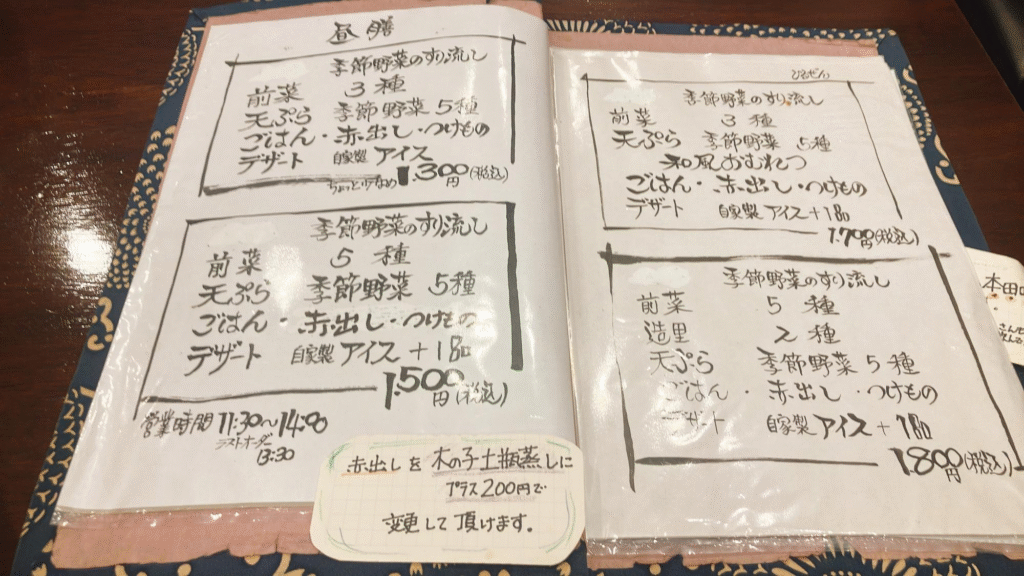 昼膳
季節野菜のすり流し
前菜 3種
天ぷら 季節野菜 5種
ごはん・赤出し・つけもの
デザート 自家製 アイス
ちょっと少なめ 1.300円(税込)
季節野菜のすり流し
前菜 5種
天ぷら 季節野菜 5種
ごはん・赤出し・つけもの
デザート 自家製 アイス+1品
1.500円(税込)
営業時間 11:30〜14:00
ラストオーダー
13:30
赤出しを木の子土瓶蒸しに
プラス200円で
変更して頂けます。
ひるぜん
季節野菜のすり流し
前菜 3種
天ぷら 季節野菜 5種
和風おむれつ
ごはん・赤出し・つけもの
デザート 自家製アイス+1品
1.700円(税込)
季節野菜のすり流し
前菜 5種
造里 2種
天ぷら 季節野菜 5種
ごはん・赤出し・つけもの
デザート 自家製 アイス+1品
1.800円(税込)
本田